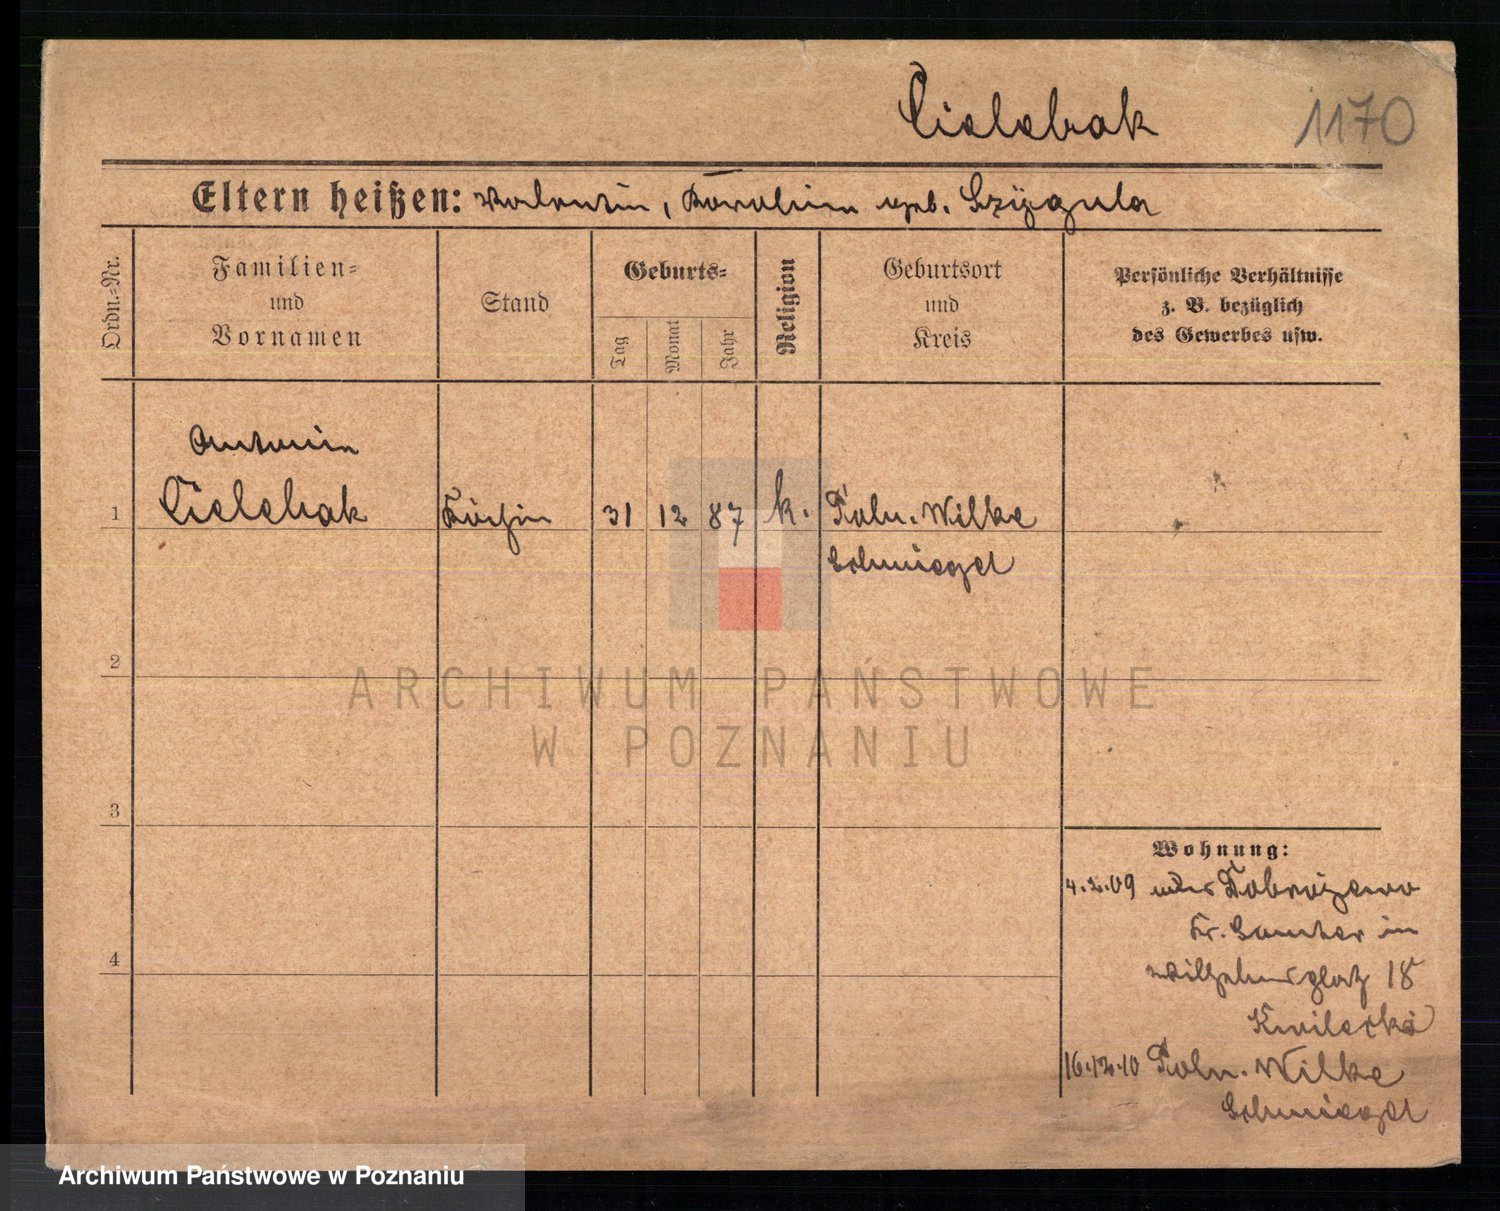 Cielebak 1170
Eltern heißen: Valentin, Karolina geb. Szczygula
Ordn.-Nr.
Familien-
und
Vornamen
Stand
Geburts-
Tag
Monat
Jahr
Religion
Geburtsort
und
Kreis
Persönliche Verhältnisse
z. B. bezüglich
des Gewerbes usw.
Antonie
1 Cielebak Köchin 31 12 87 k. Poln. Wilke
Schmiegel
2
3
4
Wohnung:
4.2.09 Dobrojewo
Kr. Samter in
Wilhelmsplatz 18
Kwilecki
16.12.10 Poln. Wilke
Schmiegel
ARCHIWUM PAŃSTWOWE
W POZNANIU
Archiwum Państwowe w Poznaniu